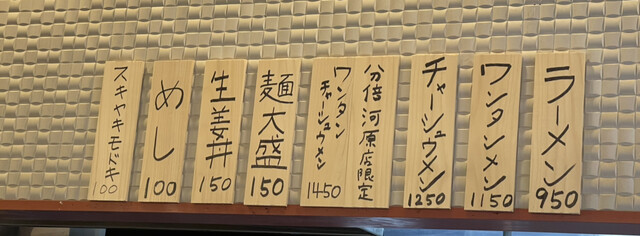 ラーメン
950
ワンタンメン
1150
チャーシュウメン
1250
分倍河原店限定
ワンタン
チャーシュウメン
1450
麺大盛
150
生姜丼
150
めし
100
スキヤキモドキ
100